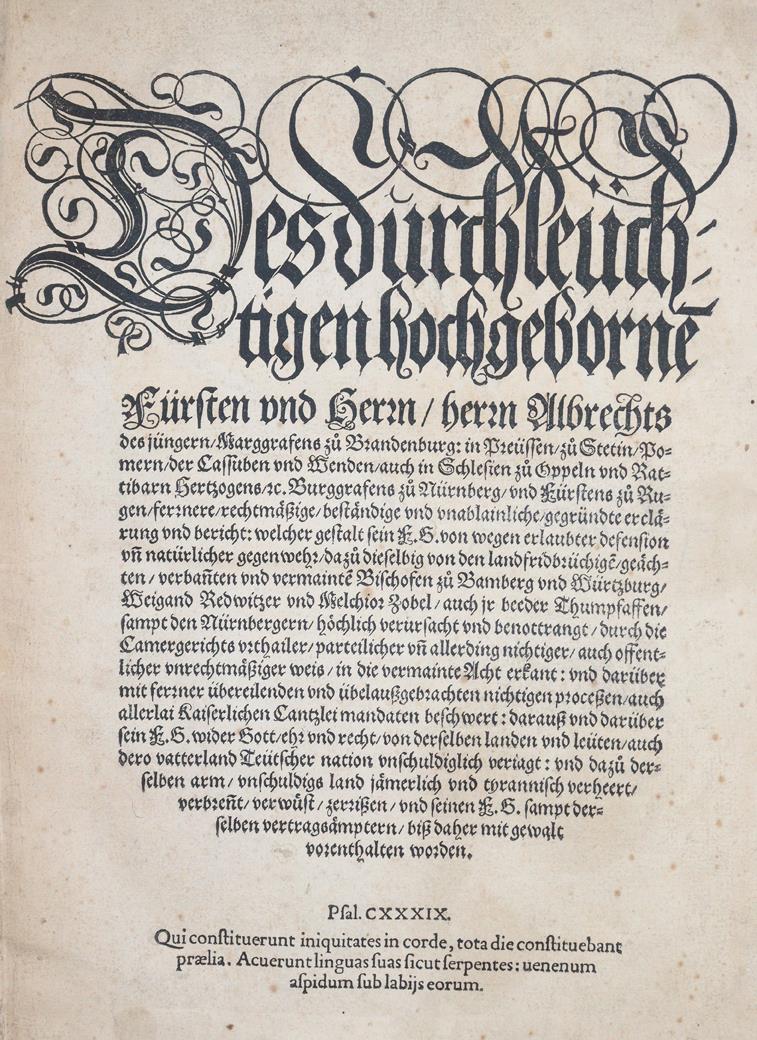 Des durchleüch-
tigen hochgebornē
Fürsten vnd Herrn / herrn Albrechts
des jüngern/Marggrafens zů Brandenburg: in Preüssen/zů Stetin/Po-
mern/der Cassuben vnd Wenden/auch in Schlesien zů Oppeln vnd Rat-
tibarn Hertzogens/ꝛc. Burggrafens zů Nürnberg/vnd Fürstens zů Ru-
gen/ferrnere/rechtmäßige/beständige vnd vnablainliche/gegründte erclä-
rung vnd bericht: welcher gestalt sein F.G. von wegen erlaubter defension
vñ natürlicher gegenwehr/dazů dieselbig von den landfridbrüchigē/geäch-
ten / verbañten vnd vermaintē Bischofen zů Bamberg vnd Würtzburg/
Weigand Redwitzer vnd Melchior Zobel / auch jr beeder Thumpfaffen/
sampt den Nürnbergern / höchlich verursacht vnd benottrangt / durch die
Camergerichts vrthailer/parteilicher vñ allerding nichtiger/auch offent-
licher vnrechtmäßiger weis / in die vermainte Acht erkant : vnd darüber
mit ferrner übereilenden vnd übelaußgebrachten nichtigen proceßen/auch
allerlai Kaiserlichen Cantzlei mandaten beschwert : darauß vnd darüber
sein F.G. wider Gott/ehr vnd recht/von derselben landen vnd leüten/auch
dero vatterland Teütscher nation vnschuldiglich veriagt : vnd dazů der-
selben arm / vnschuldigs land jämerlich vnd tyrannisch verheert/
verbreñt/verwüst/zerrißen/vnd seinen F.G. sampt der-
selben vertragsämptern / biß daher mit gewalt
vorenthalten worden.
Psal. CXXXIX.
Qui constituerunt iniquitates in corde, tota die constituebant
prælia. Acuerunt linguas suas sicut serpentes: uenenum
aspidum sub labijs eorum.